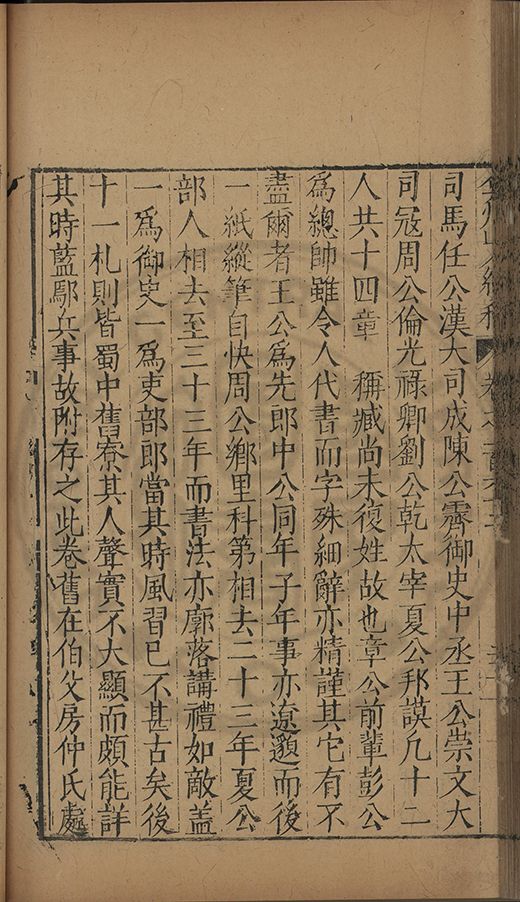 司馬任公漢大司成陳公霽御史中丞王公崇文大
司冦周公倫光祿卿劉公乾太宰夏公邦謨凢十二
人共十四章　稱臧尚未復姓故也章公前輩彭公
爲總帥雖令人代書而字殊細辭亦精謹其它有不
盡爾者王公爲先郎中公同年子年事亦遼邈而後
一紙縱筆自快周公鄉里科第相去二十三年夏公
部人相去至三十三年而書法亦廓落講禮如敵盖
一爲御史一爲吏部郎當其時風習已不甚古矣後
十一札則皆蜀中舊寮其人聲實不大顯而頗能詳
其時藍鄢兵事故附存之此卷舊在伯父房仲氏處